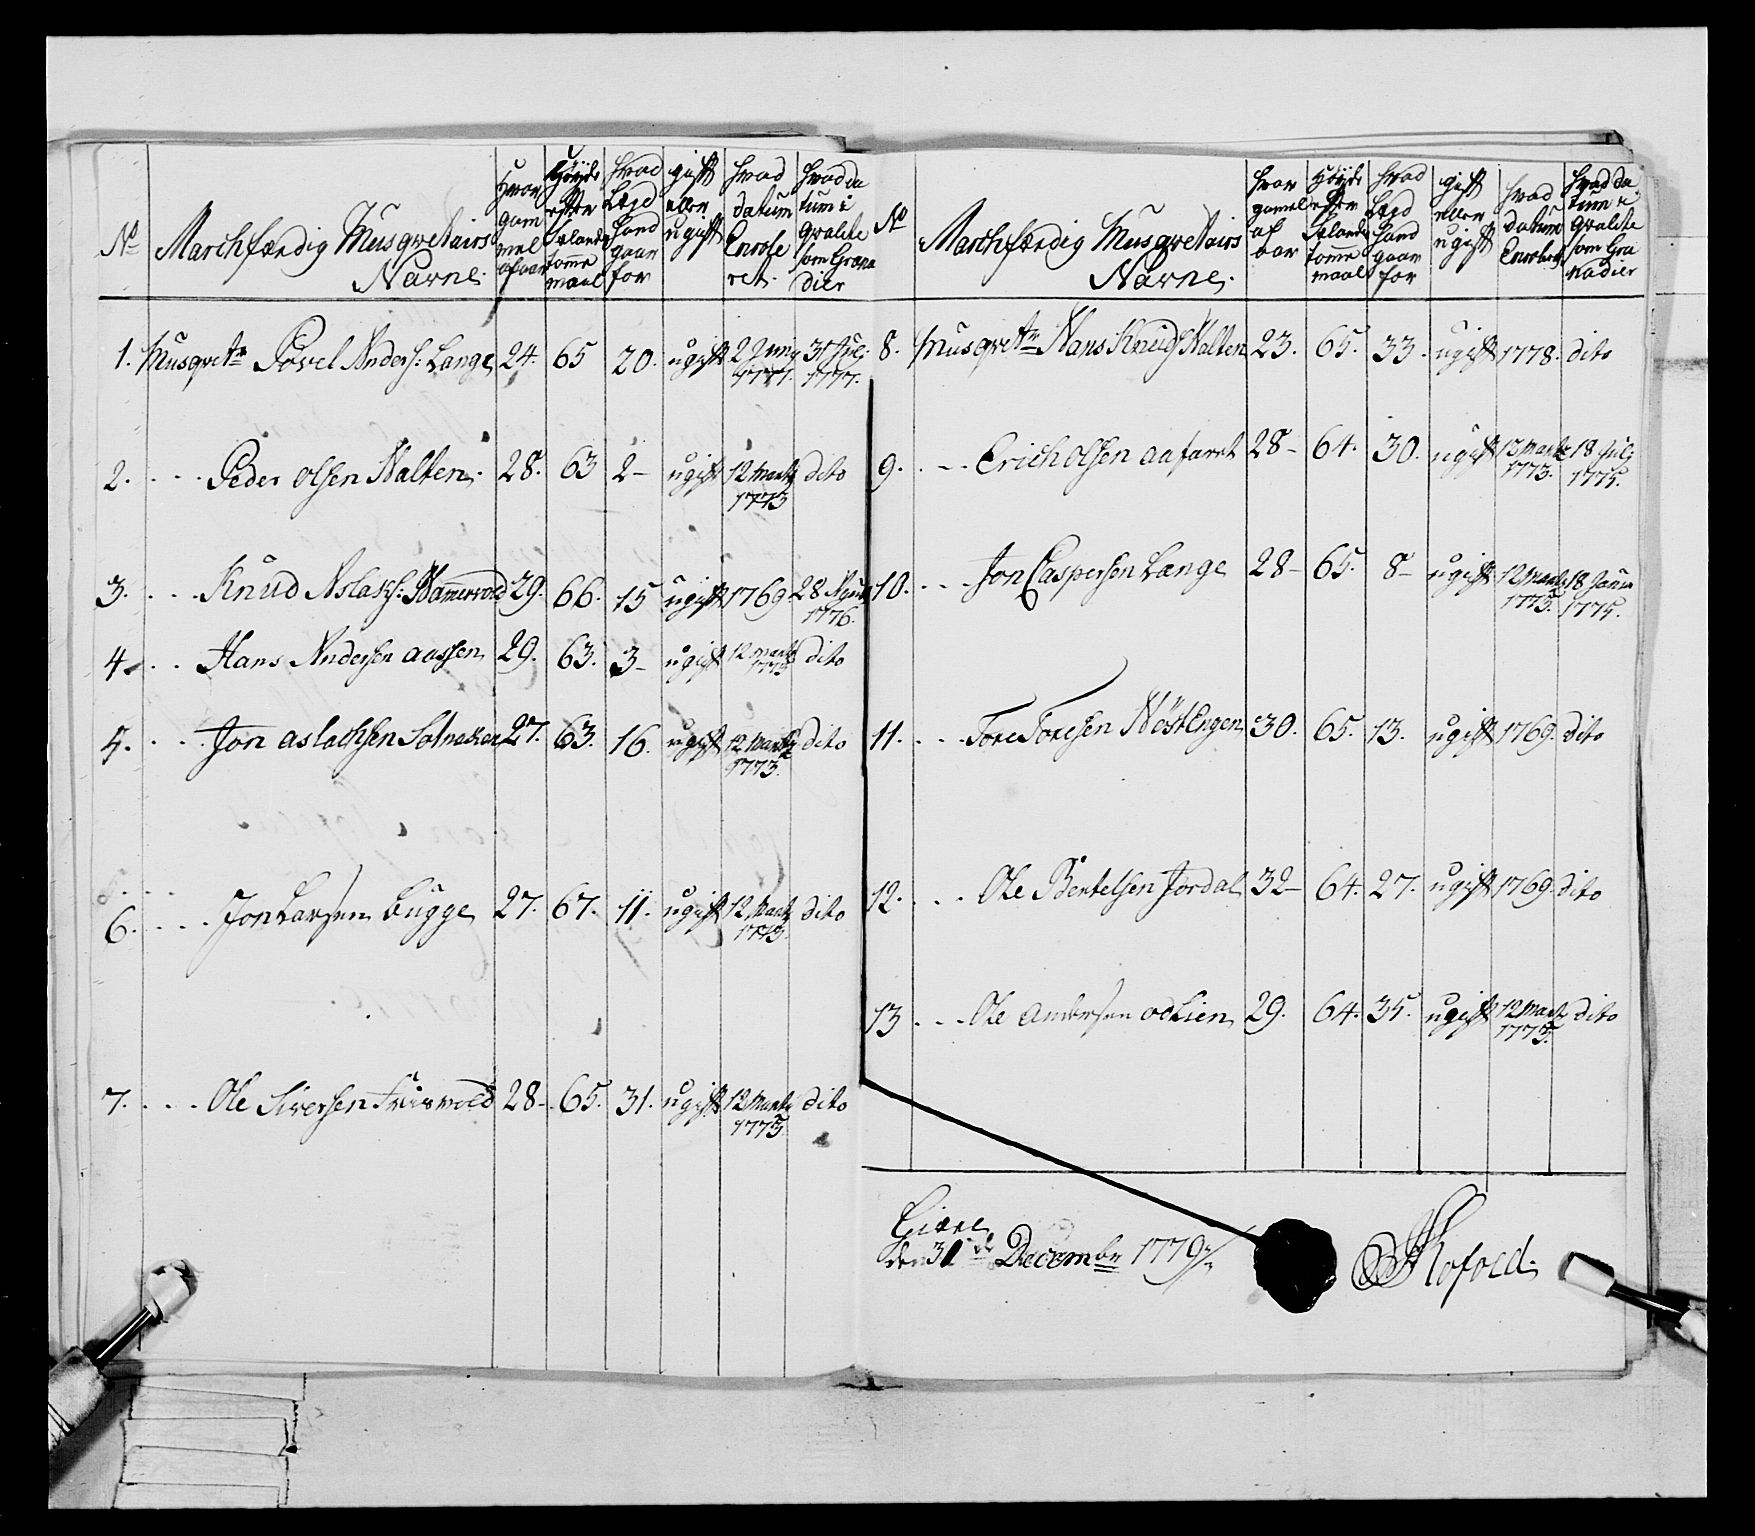 No
Marchfærdig Musqvetairs
Navne.
Hvor
gam
mel
af aar
Höyde
efter
Sælands
tomme
maal
Hvad
Lægd
Hand
gaar
for
gift
eller
ugift
Hvad
datum
Enrole
ret.
Hvad da
tum i
Qvalite
som Grena
dier
1. Musqvetr Povel Anders: Lange 24. 65 20. ugift 1777. 31 Juli 1777.
2. Peder Olsen Nalten. 28. 63 2 ugift 12 Martz 1773 dito
3. Knud Aslaks: Hammervold 29. 66. 15 ugift 1769. 28 1776.
4. Hans Andersen Aassen 29. 63. 3 ugift 12 Martz 1773 dito
5. Jon Aslachsen 27. 63. 16. ugift 12 Martz 1773. dito
6. Jon Larsen Bugge 27. 67. 11. ugift 12 Martz 1773. dito
7. Ole Siversen 28. 65. 31. ugift 12 Martz 1773 dito
No
Marchfærdig Musqvetairs
Navne.
Hvor
gamel
af
aar
Höyde
efter
Sælands
tomme
maal
Hvad
Lægd
Hand
gaar
for
gift
eller
ugift
Hvad
datum
Enrolert
Hvad da
tum i
Qvalite
som Gra
nadier
8. Musqvetr Hans Knuds: Nalten 23. 65. 33. ugift 1778. dito
9. Erich Olsen Aafaret 28 64. 30. ugift 13 Martz 1773. 18 Juli 1775.
10. Jon Caspersen Lange 28 65. 8 ugift 12 Martz 1773. 18 1775.
11. Tore Toresen Nöstengen 30. 65. 13. ugift 1769. dito
12. Ole Bertelsen Jordal 32 64. 27. ugift 1769. dito
13 Ole Andersen Odlien 29. 64. 35. ugift 12 Martz 1773. dito
Giære
den 31te Decembr 1779
Kofoed.